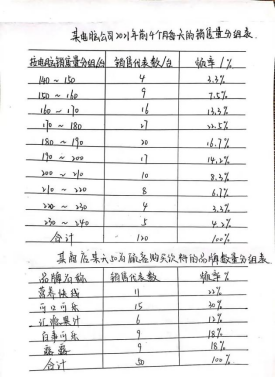 某电脑公司2021年前4个月每天的销售量分组表
按电脑销售量分组/台 销售代表数/台 频率/%
140~150 4 3.3%
150~160 9 7.5%
160~170 16 13.3%
170~180 27 22.5%
180~190 20 16.7%
190~200 17 14.2%
200~210 10 8.3%
210~220 8 6.7%
220~230 4 3.3%
230~240 5 4.2%
合计 120 100%
某商店某天50名顾客购买饮料的品牌数量分组表
品牌名称 销售代表数 频率%
营养快线 11 22%
可口可乐 15 30%
汇源果汁 6 12%
百事可乐 9 18%
露露 9 18%
合计 50 100%